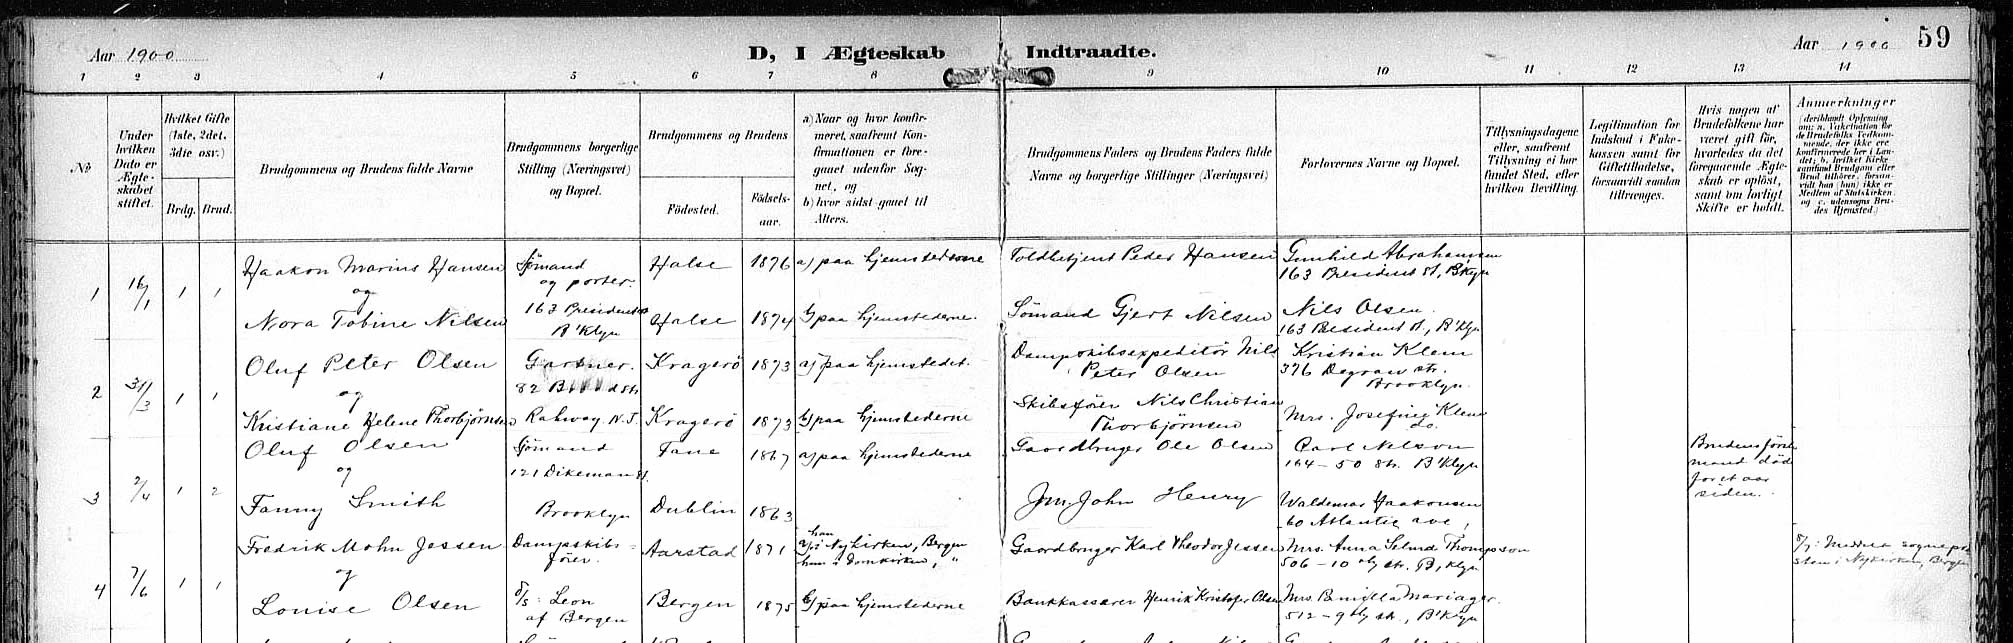 Aar 1900
D, I Ægteskab Indtraadte.
Aar 1900 59
1 2 3 4 5 6 7 8 9 10 11 12 13 14
No
Under
hvilken
Dato er
Ægte-
skabet
stiftet.
Hvilket Gifte
(1ste, 2det,
3die osv.)
Brdg. Brud.
Brudgommens og Brudens fulde Navne
Brudgommens borgerlige
Stilling (Næringsvei)
og Bopæl.
Brudgommens og Brudens
Fødested.
Fødsels-
aar.
a) Naar og hvor konfir-
meret, saafremt Kon-
firmationen er fore-
gaaet udenfor Sog-
net, og
b) hvor sidst gaaet til
Alters.
Brudgommens Faders og Brudens Faders fulde
Navne og borgerlige Stillinger (Næringsvei)
Forlovernes Navne og Bopæl.
Tillysningsdagene
eller, saafremt
Tillysning ei har
fundet Sted, efter
hvilken Bevilling.
Legitimation for
Indskud i Enke-
kassen samt for
Giftetilladelse,
forsaavidt saadan
tiltrænges.
Hvis nogen af
Brudefolkene har
været gift før,
hvorledes da det
forepaaende Ægte-
skab er opløst,
samt om lovligt
Skifte er holdt.
Anmerkninger
(deriblandt Oplysning
om: a. Vakcination for
de Brudefolks Vedkom-
mende, der ikke ere
konfirmerede her i Lan-
det; b. hvilket Kirke-
samfund Brudgom eller
Brud tilhører, forsaa-
vidt han (hun) ikke er
Medlem af Statskirken.
og c. udensogns Bru-
des Hjemsted.)
1 16/1 1 1
Haakon Marius Hansen
og
Nora Tobine Nilsen
Sjømand
og porter.
163 President st
B'klyn
Halse 1876
Halse 1874
a) paa hjemstederne
b) paa hjemstederne.
Toldbetjent Peder Hansen
Sømand Gjert Nilsen
Gunhild Abrahamsen
163 President st, B'klyn
Nils Olsen
163 President st, B'klyn
2 31/3 1 1
Oluf Peter Olsen
og
Kristiane Helene Thorbjørnsen
Gartner.
82 Broad str
Rahway. N.J.
Kragerö 1873
Kragerö 1873
a) paa hjemstedet.
b) paa hjemstederne
Dampskibsexpeditör Nils
Peter Olsen
Skibsfører Nils Christian
Thorbjørnsen
Kristian Klem
376 Degraw str.
Brooklyn.
Mrs. Josefine Klem
do.
3 2/4 1 2
Oluf Olsen
og
Fanny Smith
Sjømand
121 Dikeman st.
Brooklyn
Fane 1867
Dublin 1863
a) paa hjemstederne
Gaardbruger Ole Olsen
John Henry
Carl Nelson
164 - 50 Str. B'klyn
Waldemar Haakonsen
60 Atlantic ave,
Brudens første
mand död
for et aar
siden.
4 7/6 1 1
Fredrik Mohn Jessen
og
Louise Olsen
Dampskibs-
fører.
S/S: Leon
af Bergen
Aarstad 1871
Bergen 1875
han
a) i Nykirken, Bergen
hun i Domkirken, "
b) paa hjemstederne
Gaardbruger Karl Theodor Jessen
Bankkasserer Henrik Kristofer Olsen
Mrs. Anna Selma Thompson
506 - 10 th str. B'klyn
Mrs. Bernilla Mariager.
512 - 9th str., B'klyn
i Nykirken, Bergen